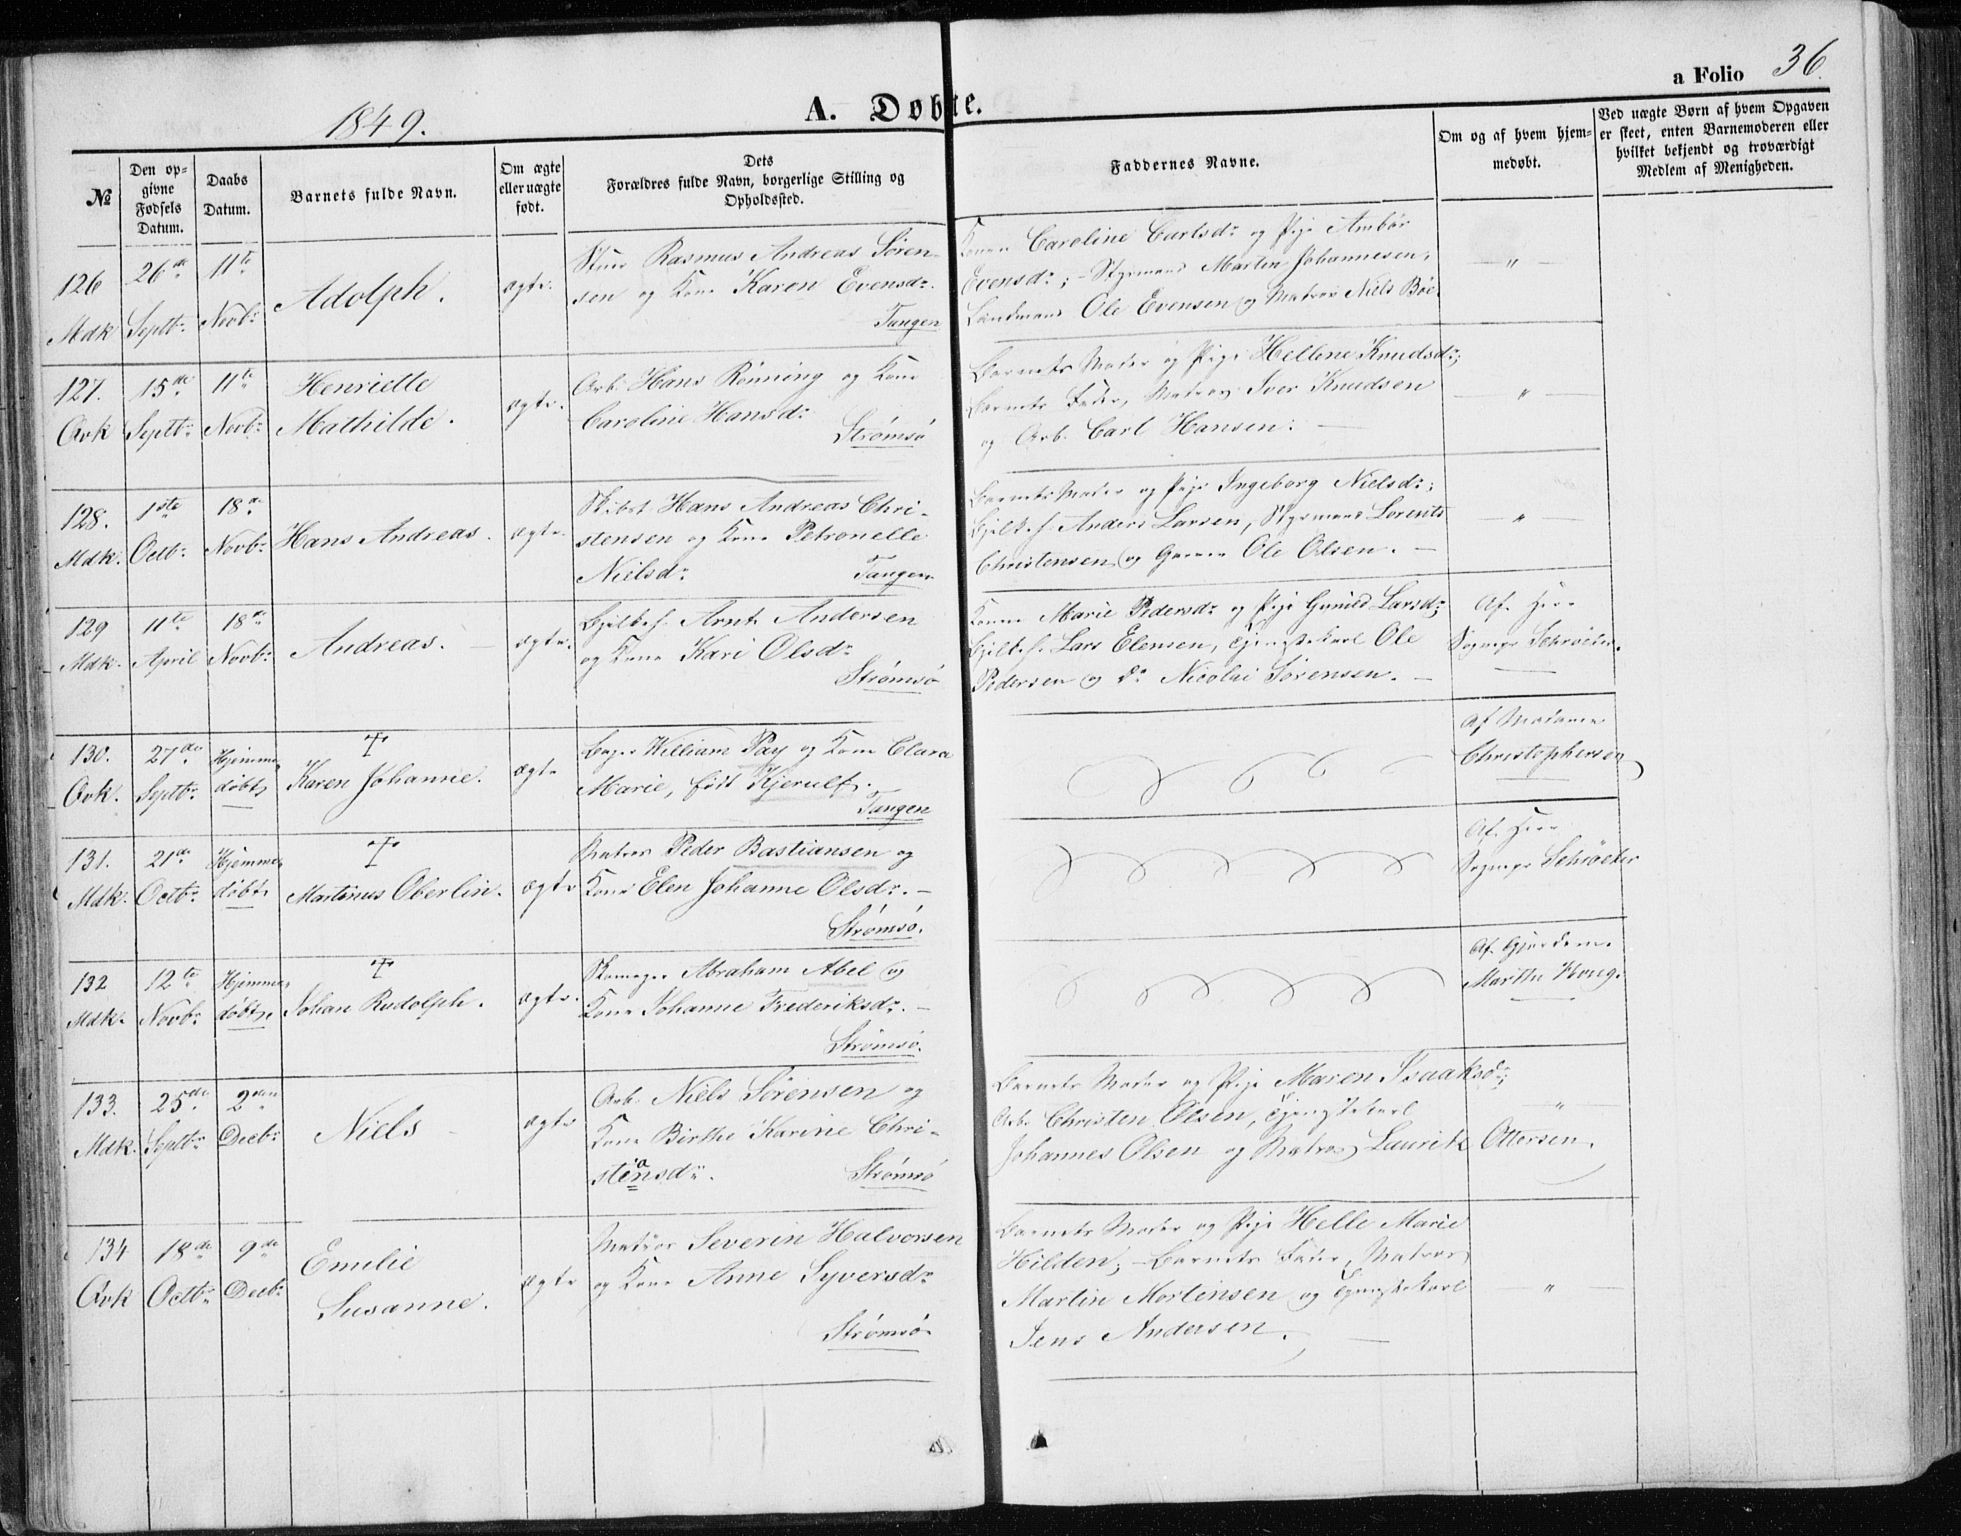 a Folio 36.
1849.
A. Døbte.
№
Den op-
givne
Fødsels
Datum.
Daabs
Datum.
Barnets fulde Navn.
Om ægte
eller uægte
født.
Dets
Forældres fulde Navn, borgerlige Stilling og
Opholdssted.
Faddernes Navne.
Om og af hvem hjem-
medøbt.
Ved uægte Børn af hvem Opgaven
er skeet, enten Barnemoderen eller
hvilket bekjendt og troværdigt
Medlem af Menigheden.
126
Mdk
26de
Septbr.
11te
Novbr
Adolph.
ægte.
Rasmus Andreas Søren-
sen og Kone Karen Evensdr.
Tangen
Konen Caroline Carlsdr og Pige Ambør
Evensdr; - Styrmand Martin Johannesen,
Landmand Ole Evensen og Matros Niels Böe.
— " —
127.
Qvk
15de
Septbr.
11te
Novbr.
Henriette
Mathilde.
ægte.
Arb. Hans Rönning og Kone
Caroline Hansdr
Strømsø
Barnets Moder og Pige Hellene Knudsdr;
Barnets Fader, Matros Iver Knudsen
og Arb. Carl Hansen. —
— " —
128.
Mdk.
1ste
Octbr.
18de
Novbr.
Hans Andreas.
ægte.
Skibst. Hans Andreas Chri-
stensen og Kone Petronelle
Nielsdr
Tangen
Barnets Moder og Pige Ingeborg Nielsdr;
Anders Larsen, Styrmand Lorents
Christensen og Ole Olsen. —
— " —
129
Mdk.
11te
April
18de
Novbr.
Andreas. —
ægte.
Arnt Andersen
og Kone Kari Olsdr
Strømsø
Konen Marie Pedersdr og Pige Gunild Larsdr;
Lars Elensen, Tjenestekarl Ole
Pedersen og do Nicolai Sørensen. —
Af Herr
Sognepr Schrøeter.
130.
Qvk.
27de
Septbr.
Hjemme-
døbt
†
Karen Johanne.
ægte
Bager William Pay og Kone Clara
Marie, født Kjerulf.
Tangen
Af Madame
Christophersen
131.
Mdk.
21de
Octbr.
Hjemme-
døbt
†
Martinus Oberlin.
ægte
Matros Peder Bastiansen og
Kone Elen Johanne Olsdr. —
Strømsø.
Af Herr
Sognepr Schrøeter
132
Mdk.
12te
Novbr
Hjemme-
døbt.
†
Johan Rudolph.
ægte.
Skomager Abraham Abel og
Kone Johanne Frederiksdr. —
Strømsø.
Af Gjordem.
Marthe Houg.
133.
Mdk.
25de
Septbr
2den
Decbr
Niels —
ægte
Arb. Niels Sørensen og
Kone Birthe Karine Chri-
stensdr.
Strømsø
Barnets Moder og Pige Maren Isaaksdr;
Arb. Christen Olsen, Tjenestekarl
Johannes Olsen og Matros Laurits Ottersen.
— " —
134
Qvk
18de
Octbr.
9de
Decbr
Emilie
Susanne.
ægte
Matros Severin Halvorsen
og Kone Anne Syversdr
Strømsø
Barnets Moder og Pige Helle Marie
Hilden; — Barnets Fader, Matros
Martin Mortensen og Tjenestekarl
Jens Andersen. —
— " —